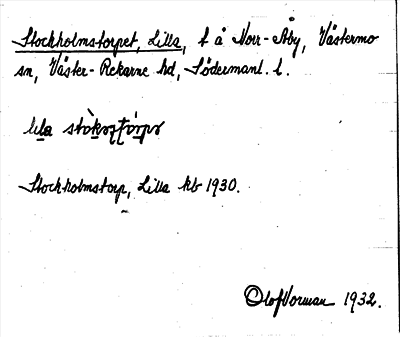 Stockholmstorpet, Lilla, t å Norr-Åby, Västermo
sn, Väster-Rekarne hd, Södermanl. l.
lila
Stockholmstorp, Lilla kb 1930.
Olof Vorman 1932.